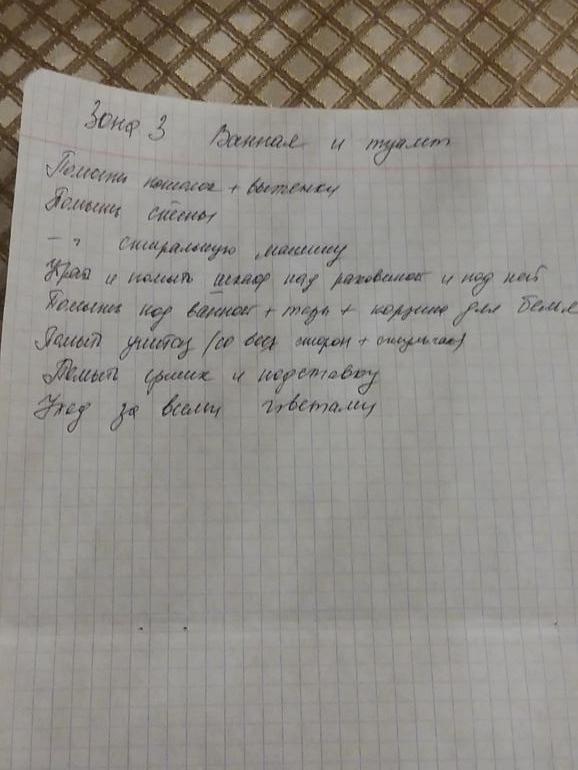 Зона 3 Ванная и туалет
Помыть потолок + вытяжку
Помыть стены
–"– стиральную машину
и помыть шкаф над раковиной и под ней
Помыть под ванной + тазы + корзина для белья
Помыть унитаз (со всех сторон +
Помыть ершик и подставку
Уход за всеми цветами